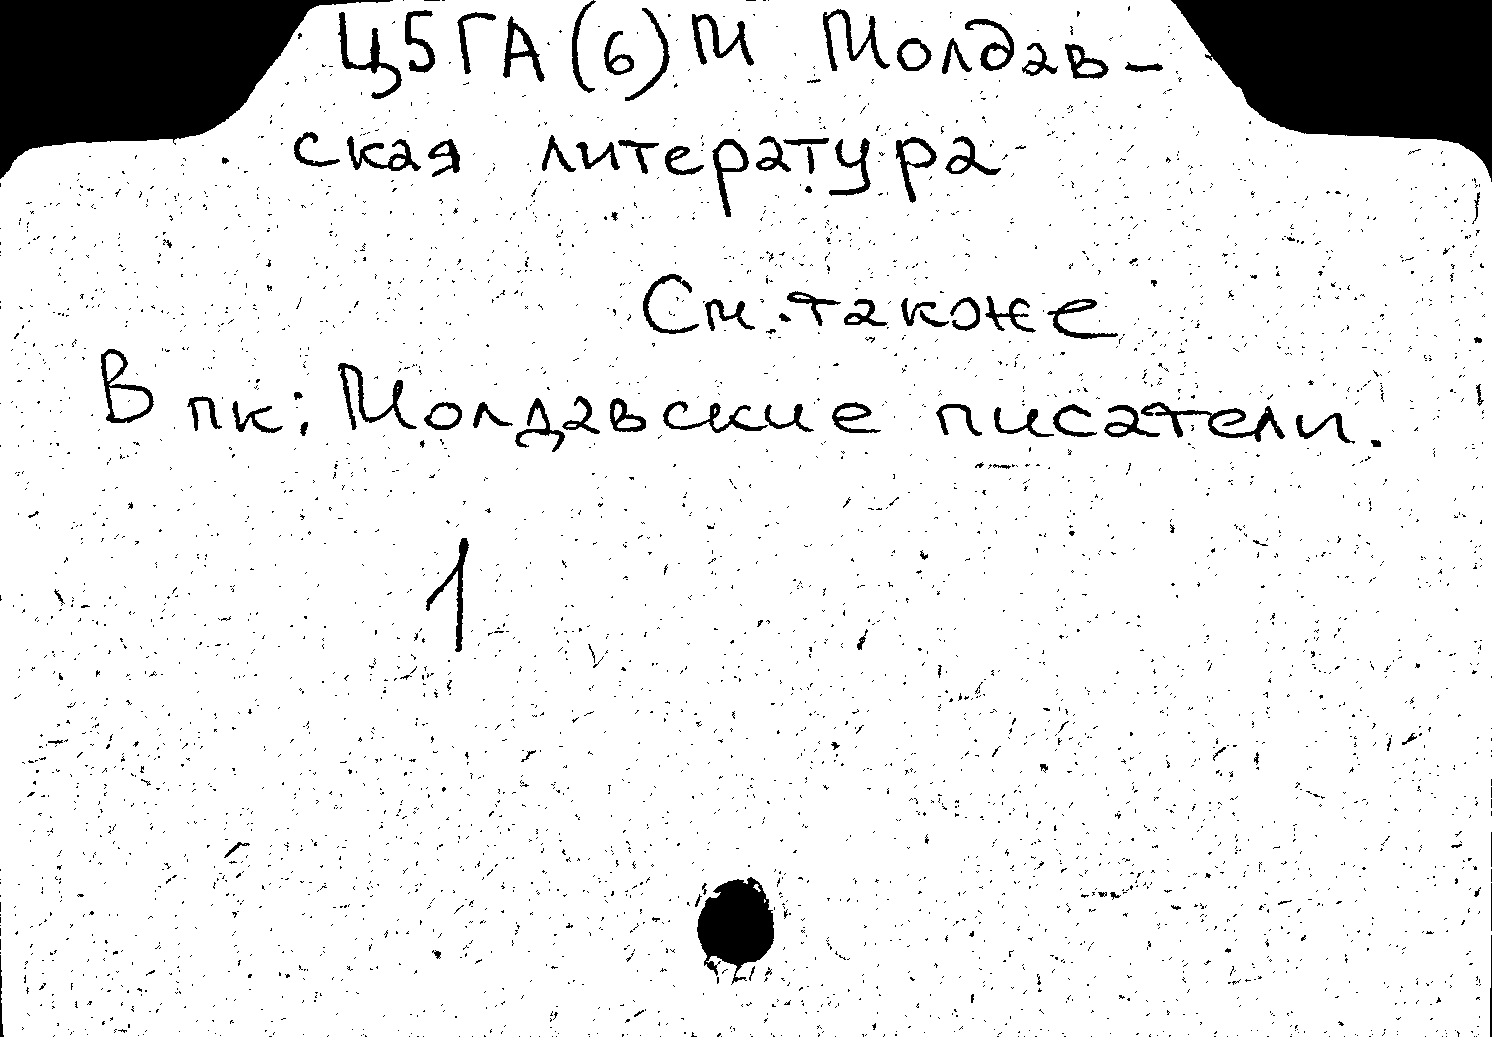 Ц5ГА(6)М Молдав-
ская литература
См. также
В пк: Молдавские писатели.
1